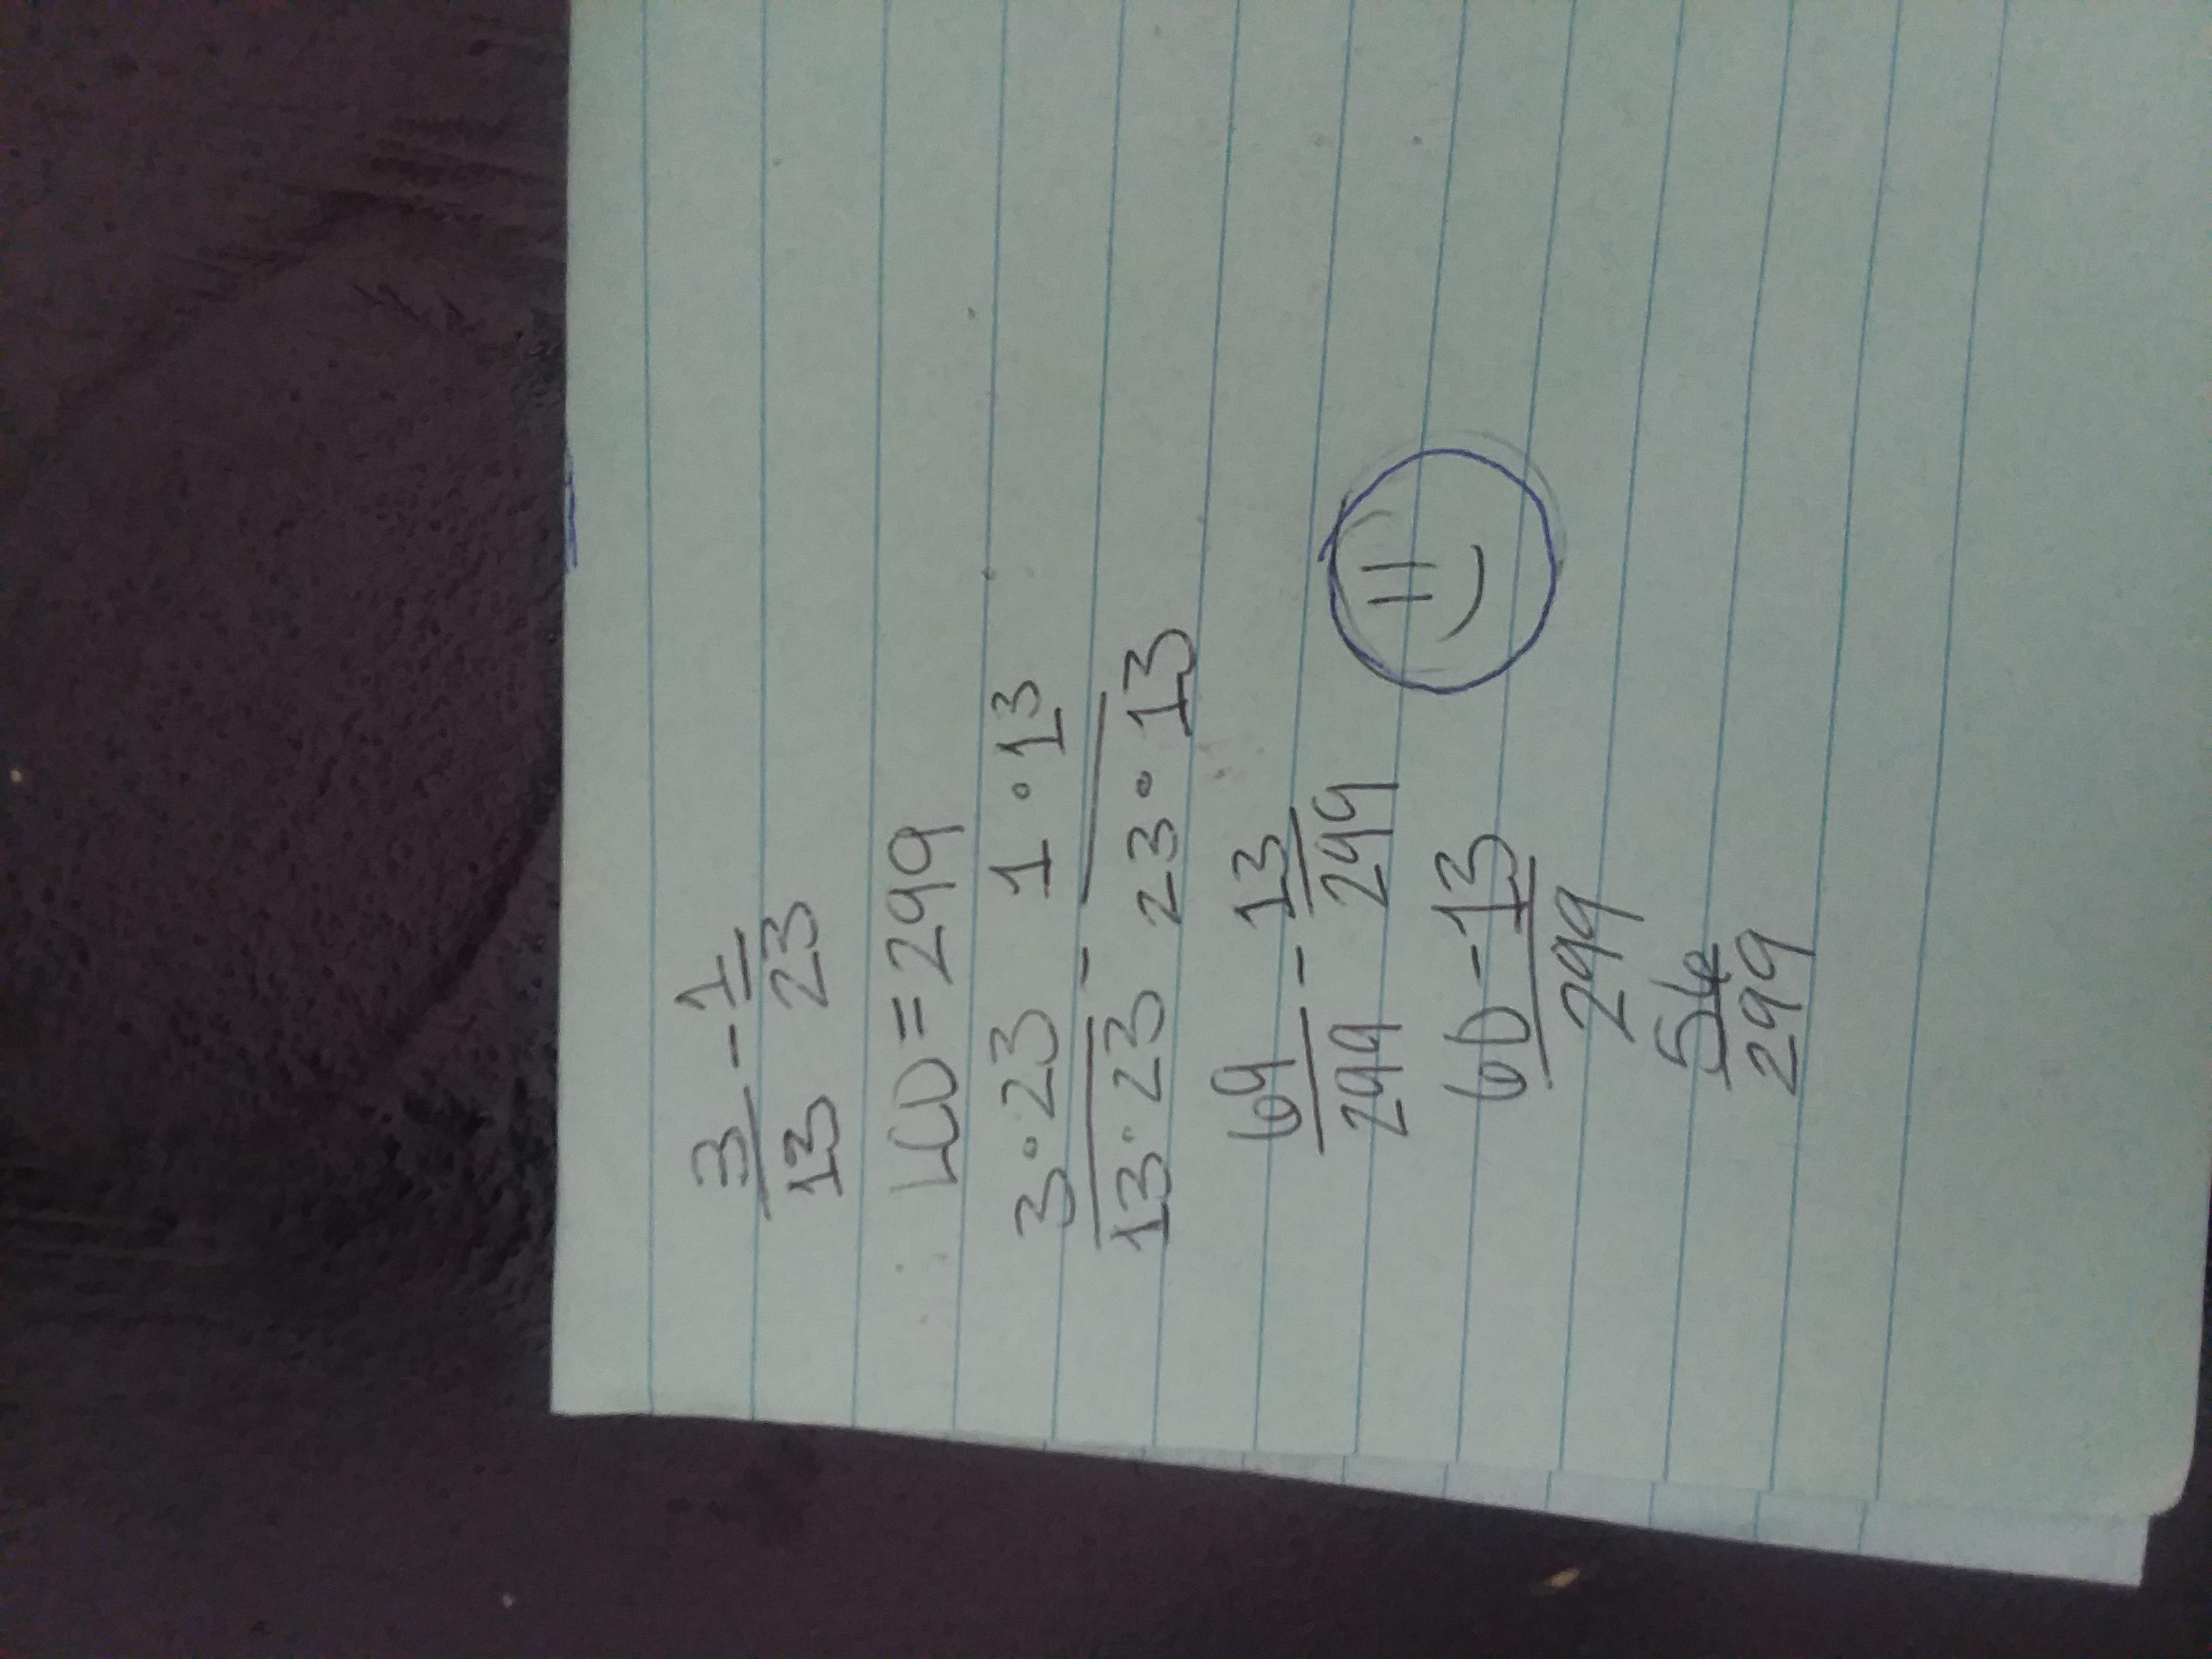 3/13 - 1/23
LCD=299
3·23/13·23 - 1·13/23·13
69/299 - 13/299
60-13/299
56/299